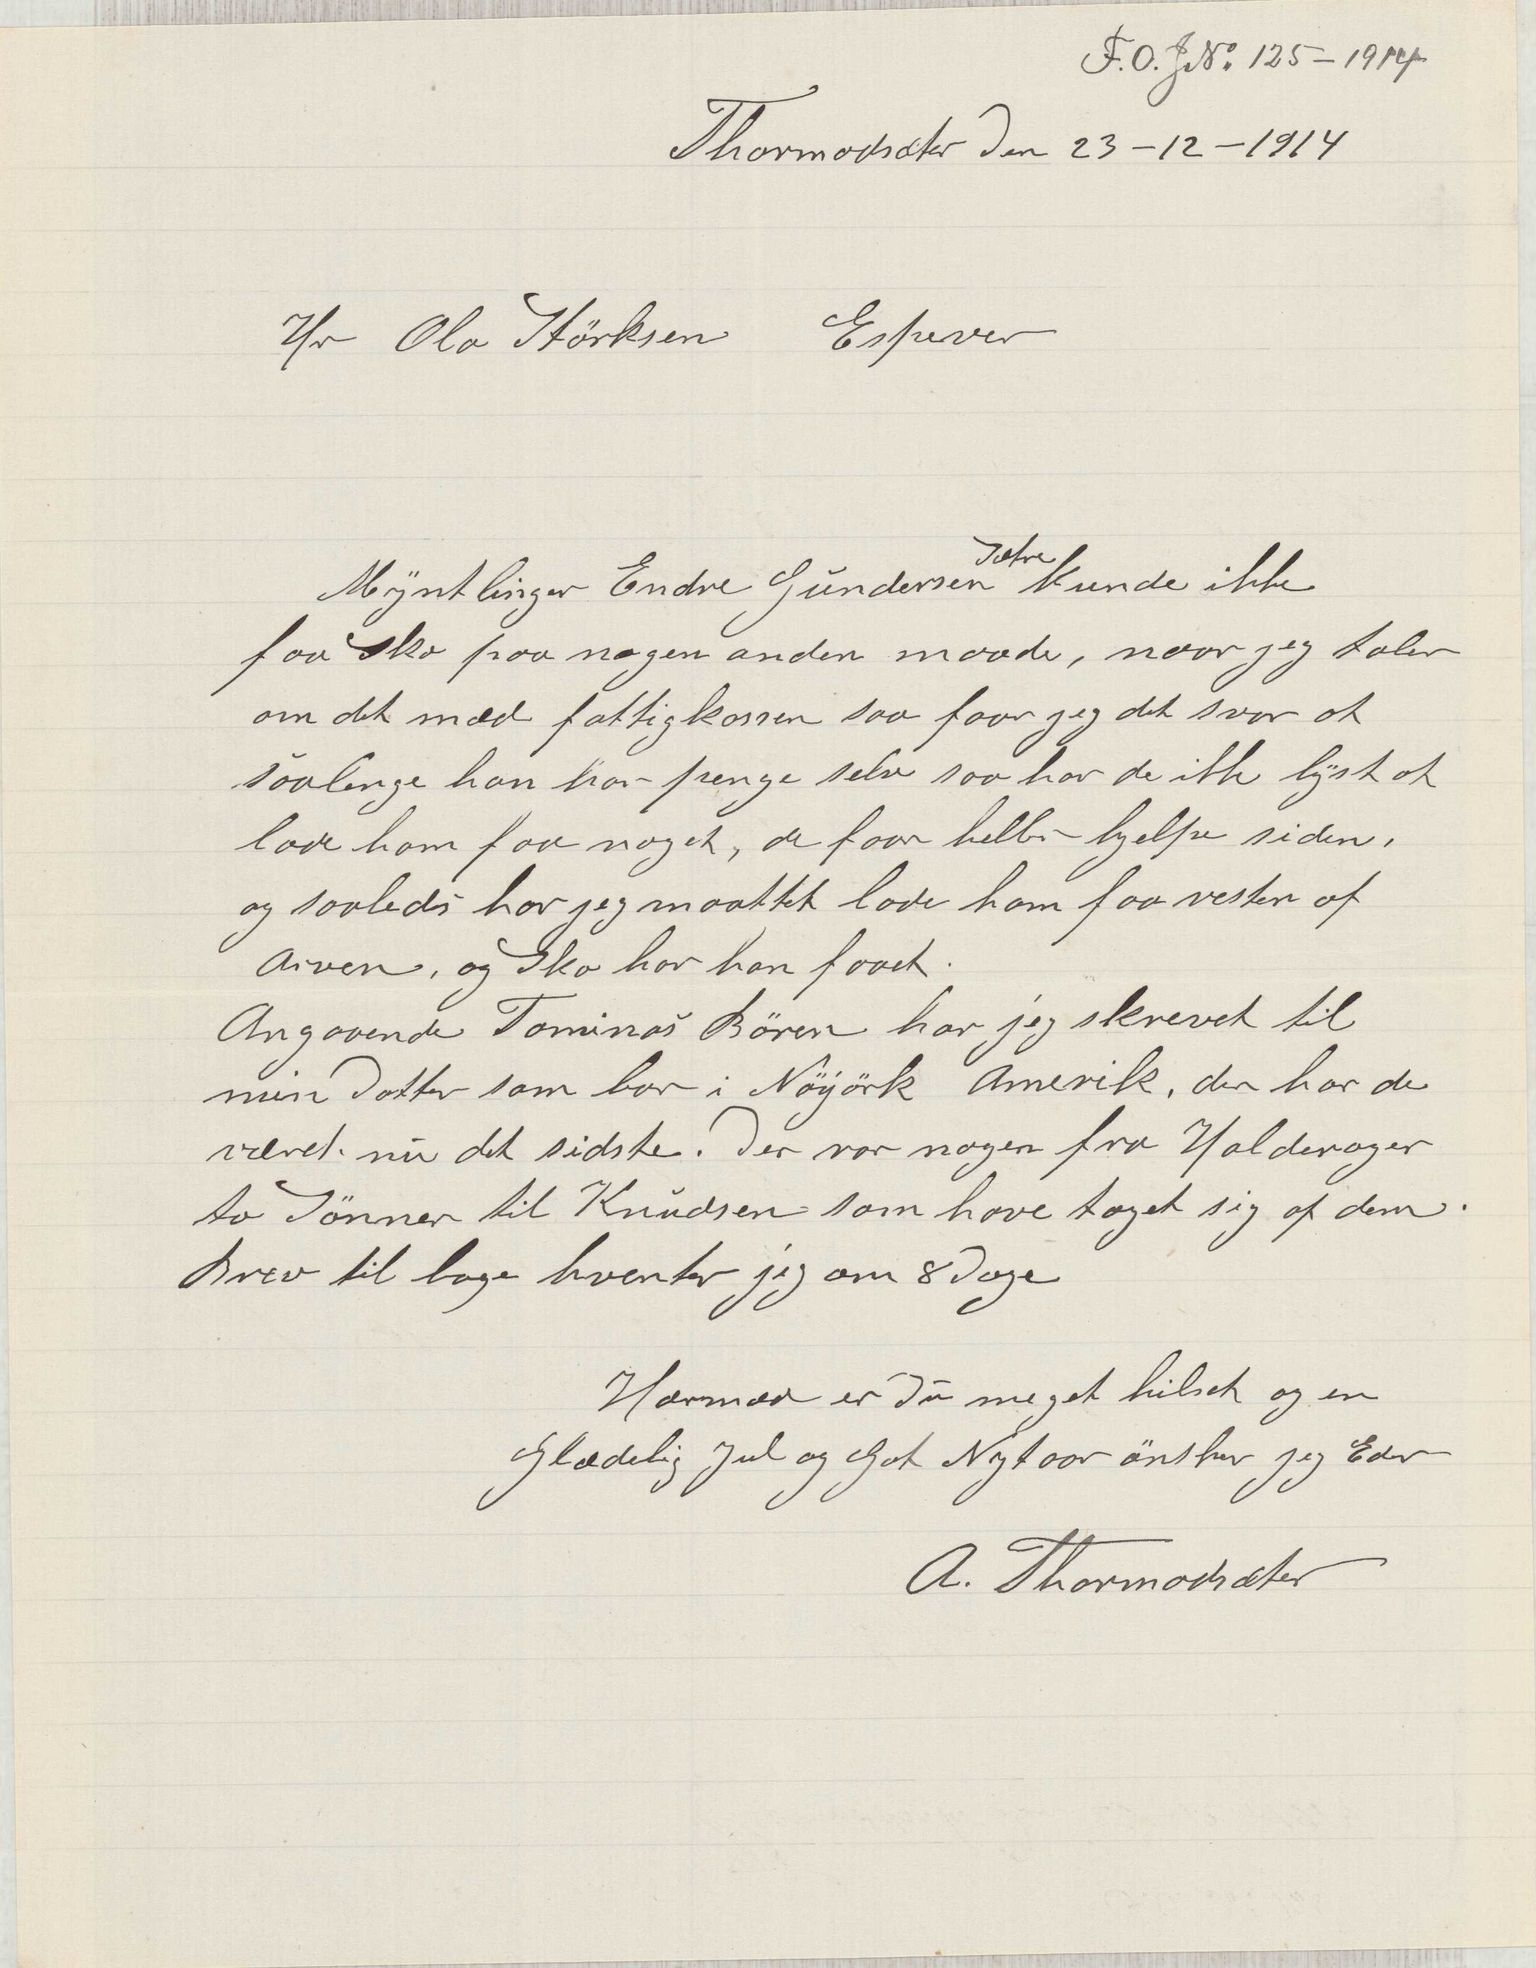 F.O.J.No. 125-1914
Thormodsæter Den 23-12-1914
Hr Ola Störksen Espever
Sætre
Mÿntlinger Endre Gŭndersen kunde ikke
faa Sko paa nogen anden maade, naar jeg taler
om det mæd fattigkassen saa faar jeg det svar at
saalenge han har penge selv saa har de ikk lÿst at
lade ham faa noget, de faar heller hjelpe siden,
og saaledes har jeg maattet lade ham faa resten af
Arven, og Sko har han faaet.
Angaaende Tominas Bören har jeg skrevet til
min Datter som bor i Nöÿörk Amerik, der har de
været nŭ det sidste. Der var nogen fra Halderager
to Sönner til Knŭdsen som have taget sig af dem.
Brev til bage hventer jeg om 8 Dage
Hærmæd er Dŭ meget hilset og en
Glædelig Jul og Got Nytaar önsker jeg Eder
A. Thormodsæter